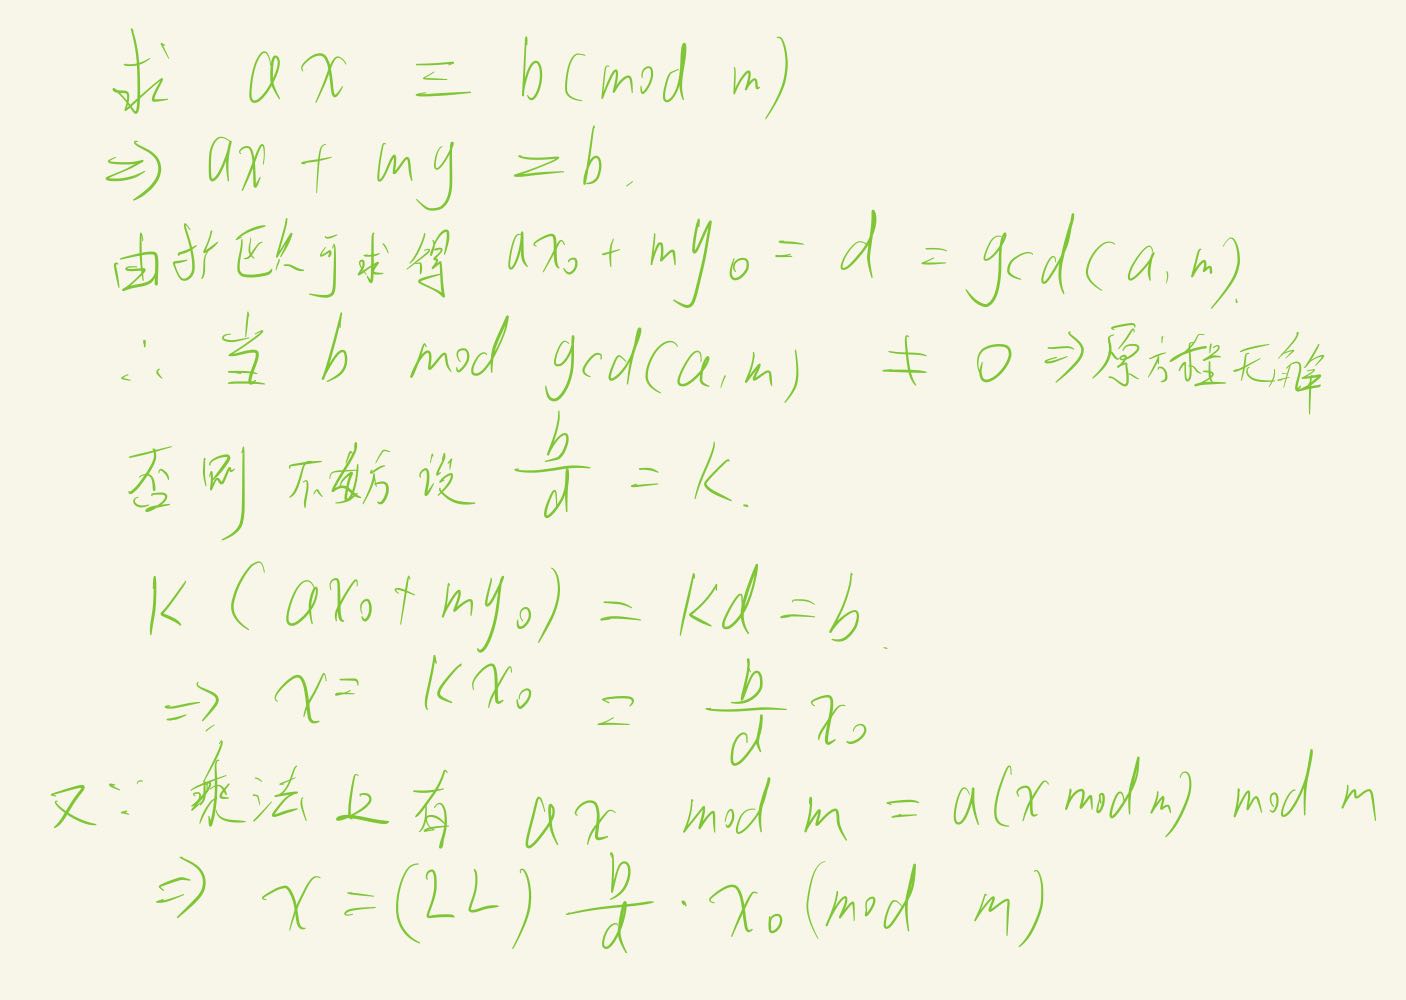 求 ax ≡ b (mod m)
⇒ ax + my = b.
由扩欧可求得 ax₀ + my₀ = d = gcd(a, m).
∴ 当 b mod gcd(a, m) ≠ 0 ⇒ 原方程无解
否则 不妨设 b/d = k.
k (ax₀ + my₀) = kd = b.
⇒ x = kx₀ = b/d x₀
又∵ 乘法上有 ax mod m = a(x mod m) mod m
⇒ x = (LL) b/d · x₀ (mod m)